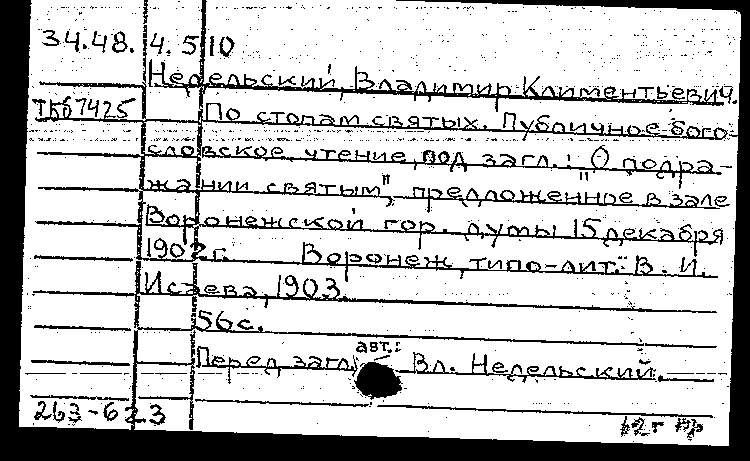 34.48.4.510
Недельский, Владимир Климентьевич.
По стопам святых. Публичное бого-
словское чтение, под загл.: "О подра-
жании святым", предложенное в зале
Воронежской гор. думы 15 декабря
1902 г. Воронеж, типо-лит. В. И.
Исаева, 1903.
56 с.
Перед загл. авт.: Вл. Недельский.
263-623
62 г